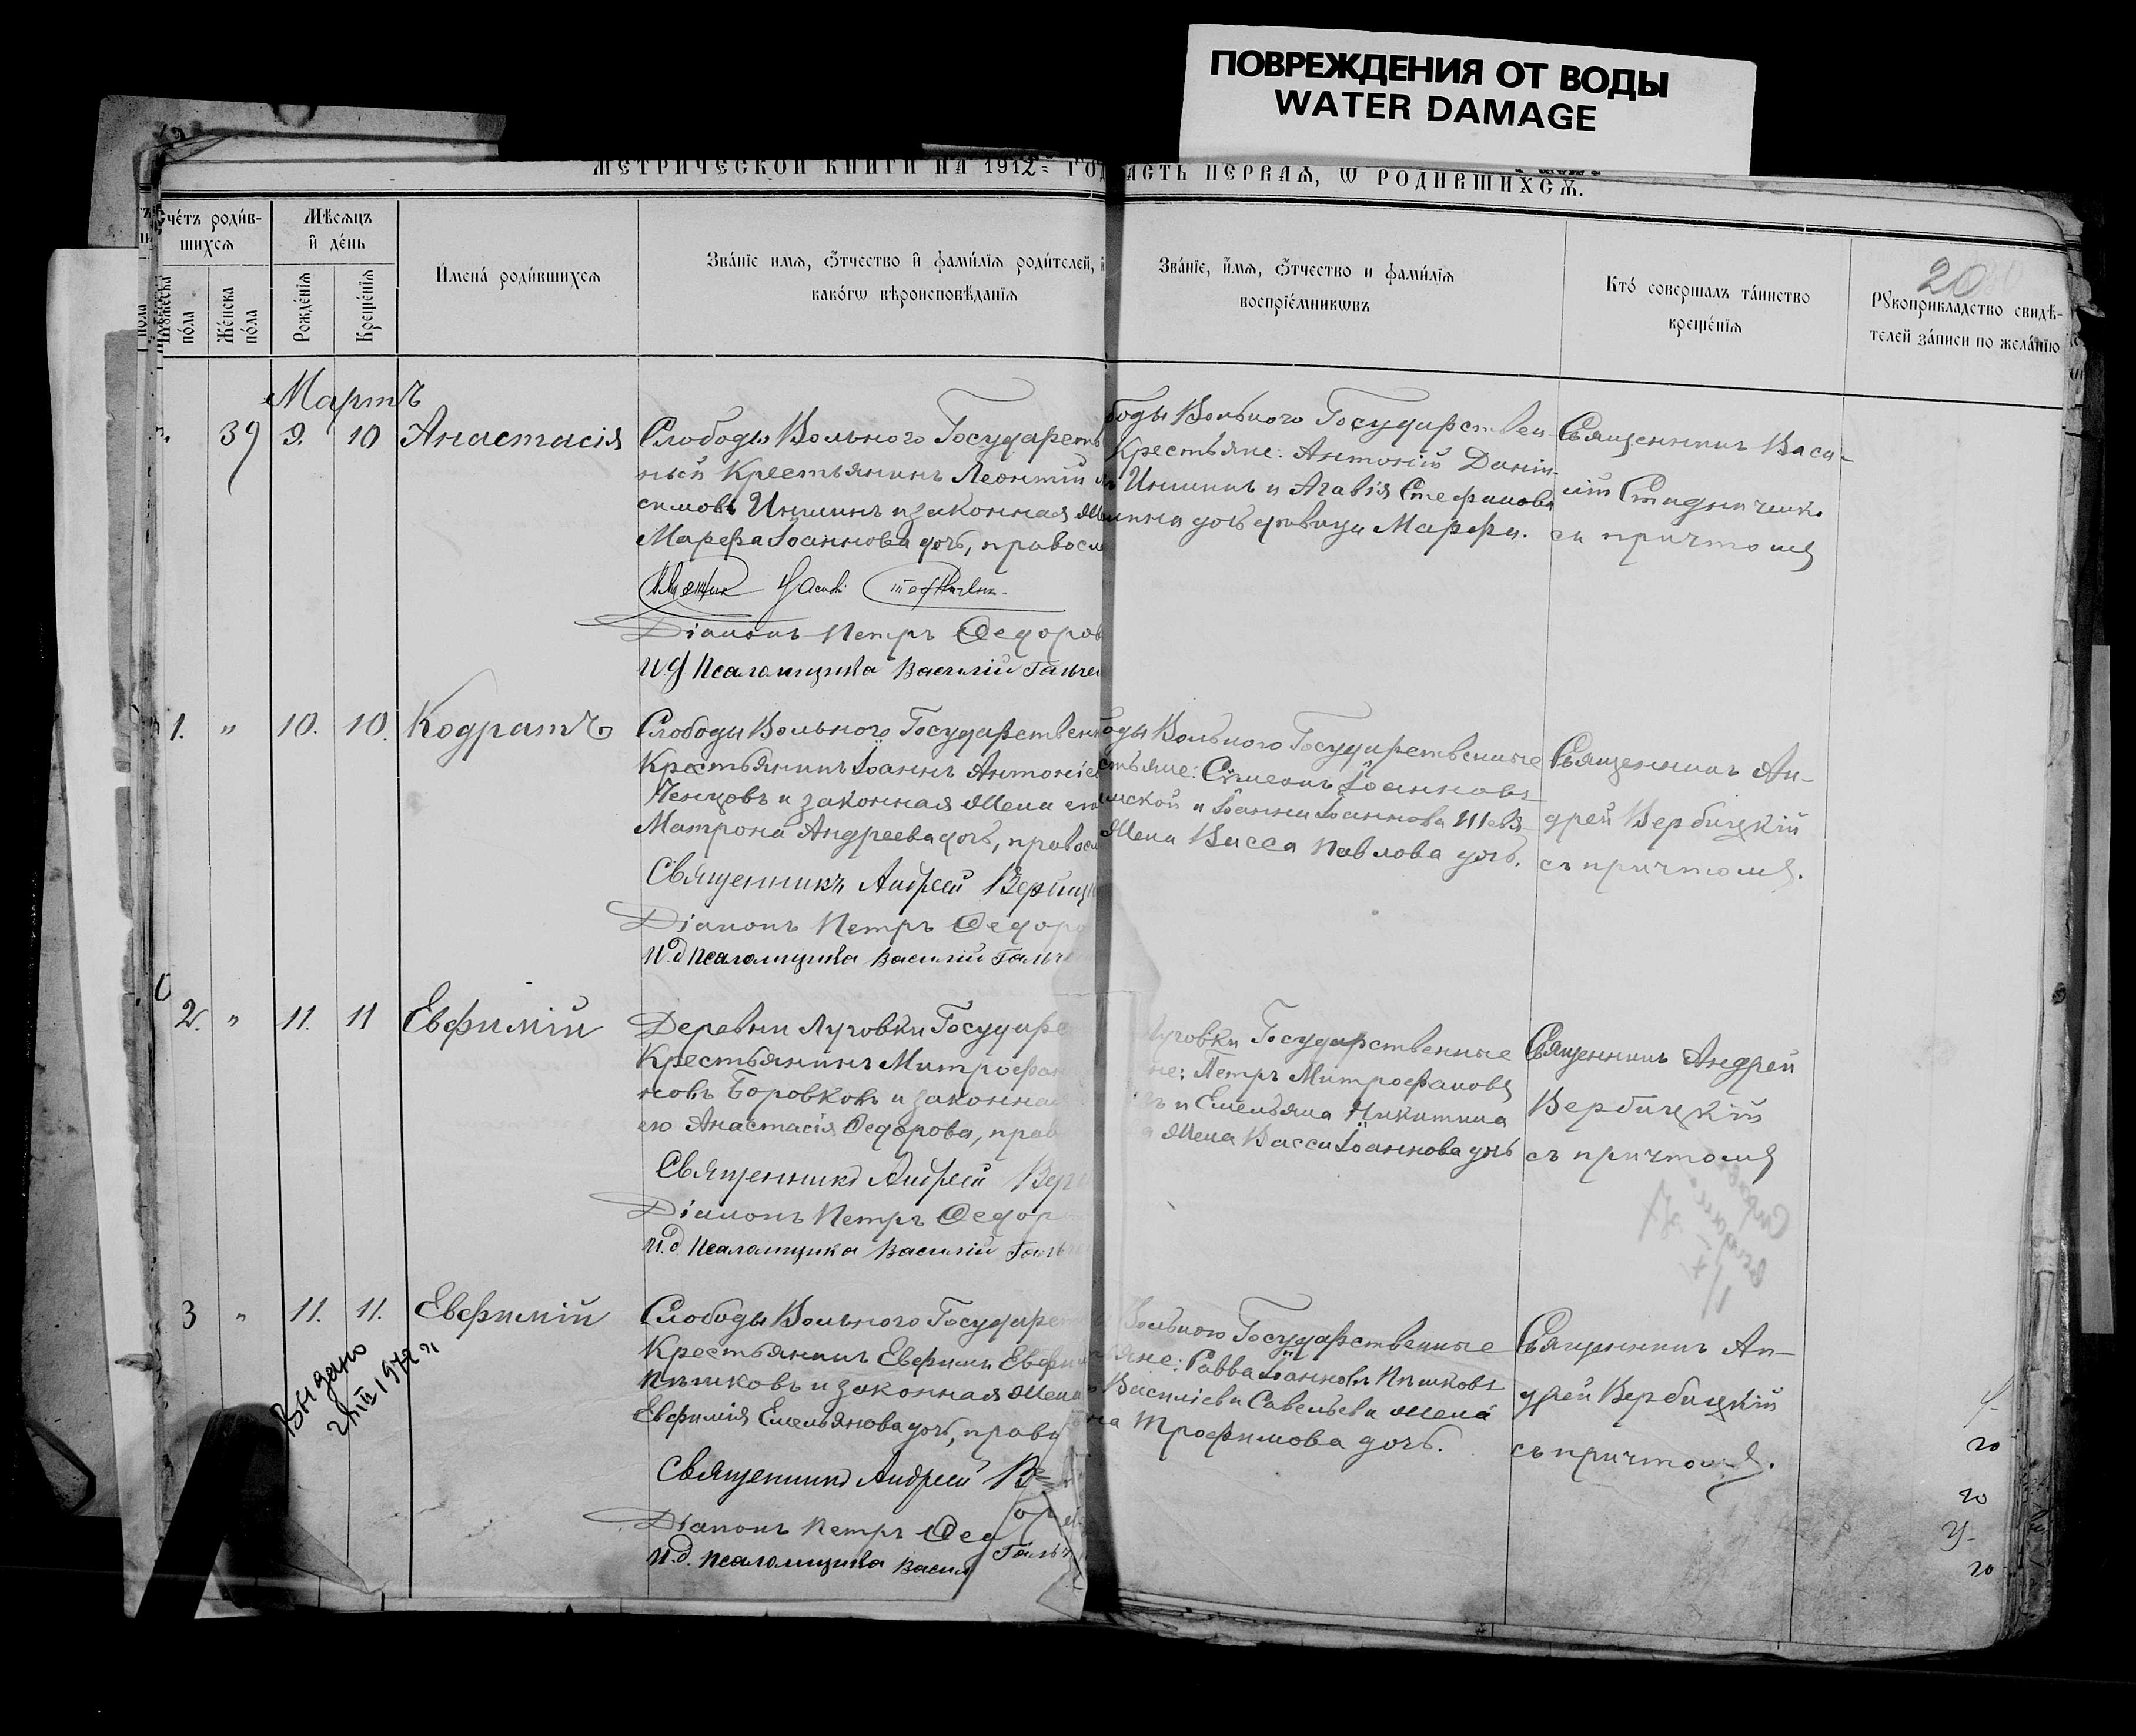 ПОВРЕЖДЕНИЯ ОТ ВОДЫ
WATER DAMAGE
МЕТРИЧЕСКОЙ КНИГИ НА 1912 ГОД
АСТЬ ПЕРВАЯ, Ѡ РОДИВШИХСѦ.
20
Счетъ родив-
шихсѧ
Мѣсѧцъ
и день
пола
Женска
пола
Рожденїѧ
Крещенїѧ
Имена родившихсѧ
Званїе имѧ, ѿчество и фамилїѧ родителей, и
какогѡ вѣроисповѣданїѧ
Званїе, имѧ, ѿчество и фамилїѧ
воспрїемникѡвъ
Кто совершалъ таинство
крещенїѧ
Рукоприкладство свидѣ-
телей записи по желанїю
Мартъ
39 9. 10 Анастасія
Слободы Вольного Государств
ный Крестьянинъ Леонтій
симовъ Иншинъ и законная
Марѳа Іоаннова дочь, правосл
Діаконъ Петръ Ѳедоров
И.д Псаломщика Василій Гальчен
боды Вольного Государствен
Крестьяне: Антоній Даніи-
Иншинъ и Агавія Стефанова
дочь дѣвица Марѳа.
Священникъ Васи-
лій Стадниченко
съ причтомъ
1. " 10. 10. Кодратъ
Слободы Вольного Государствен
Крестьянинъ Іоаннъ Антоніев
Пенцовъ и законная жена его
Матрона Андреева дочь, правосл
Священникъ Андрей Вербицк
Діаконъ Петръ Ѳедоро
И.д Псаломщика Василій Гальч
оды Вольного Государственные
стьяне: Симеонъ Іоанновъ
и Іоанна Іоаннова
жена Васса Павлова дочь.
Священникъ Ан-
дрей Вербицкій
съ причтомъ.
2. " 11. 11 Евфимій
Деревни Луговки Государс
Крестьянинъ Митрофан
новъ Боровковъ и законная
его Анастасія Ѳедорова, прав
Священникъ Андрей Верб
Діаконъ Петръ Ѳедор
И.д Псаломщика Василій Гальч
Луговки Государственные
не: Петръ Митрофановъ
и Емельяна Никитина
жена Васса Іоаннова дочь
Священникъ Андрей
Вербицкій
съ причтомъ
3 " 11. 11. Евфимій
Слободы Вольного Государст
Крестьянинъ Евфимъ Евфим
Пѣшковъ и законная жена
Евфимія Емельянова дочь, право
Священникъ Андрей В
Діаконъ Петръ Ѳед
И.д. Псаломщика Васил Гальч
Вольного Государственные
яне: Савва Іоанновъ Пѣшковъ
Василіева Савельева жена
Трофимова дочь.
Священникъ Ан-
дрей Вербицкій
съ причтомъ.
Выдано
20
20
20